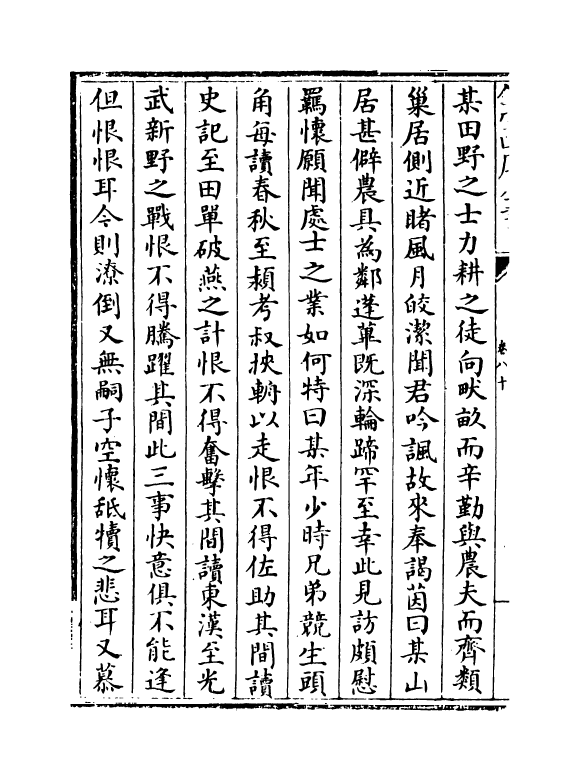 某田野之士力耕之徒向畎畝而辛勤與農夫而齊類
巢居側近睹風月皎潔聞君吟諷故來奉謁茵曰某山
居甚僻農具為鄰蓬蓽既深輪蹄罕至幸此見訪頗慰
羈懷願聞處士之業如何特曰某年少時兄弟競生頭
角每讀春秋至潁考叔挾輈以走恨不得佐助其間讀
史記至田單破燕之計恨不得奮擊其間讀東漢至光
武新野之戰恨不得騰躍其間此三事快意俱不能逢
但恨恨耳今則潦倒又無嗣子空懷舐犢之悲耳又慕
卷八十